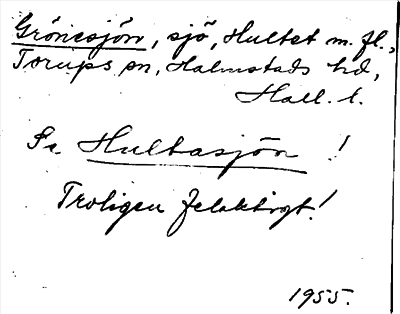 Grönesjön, sjö, Hultet m. fl.,
Torups sn, Halmstads hd,
Hall. l.
Se Hultasjön !
Troligen felaktigt!
1955.